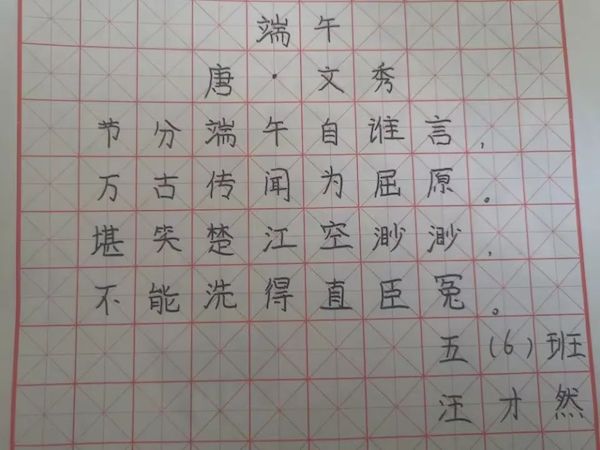 端午
唐·文秀
节分端午自谁言，
万古传闻为屈原。
堪笑楚江空渺渺，
不能洗得直臣冤。
五（6）班
汪才然